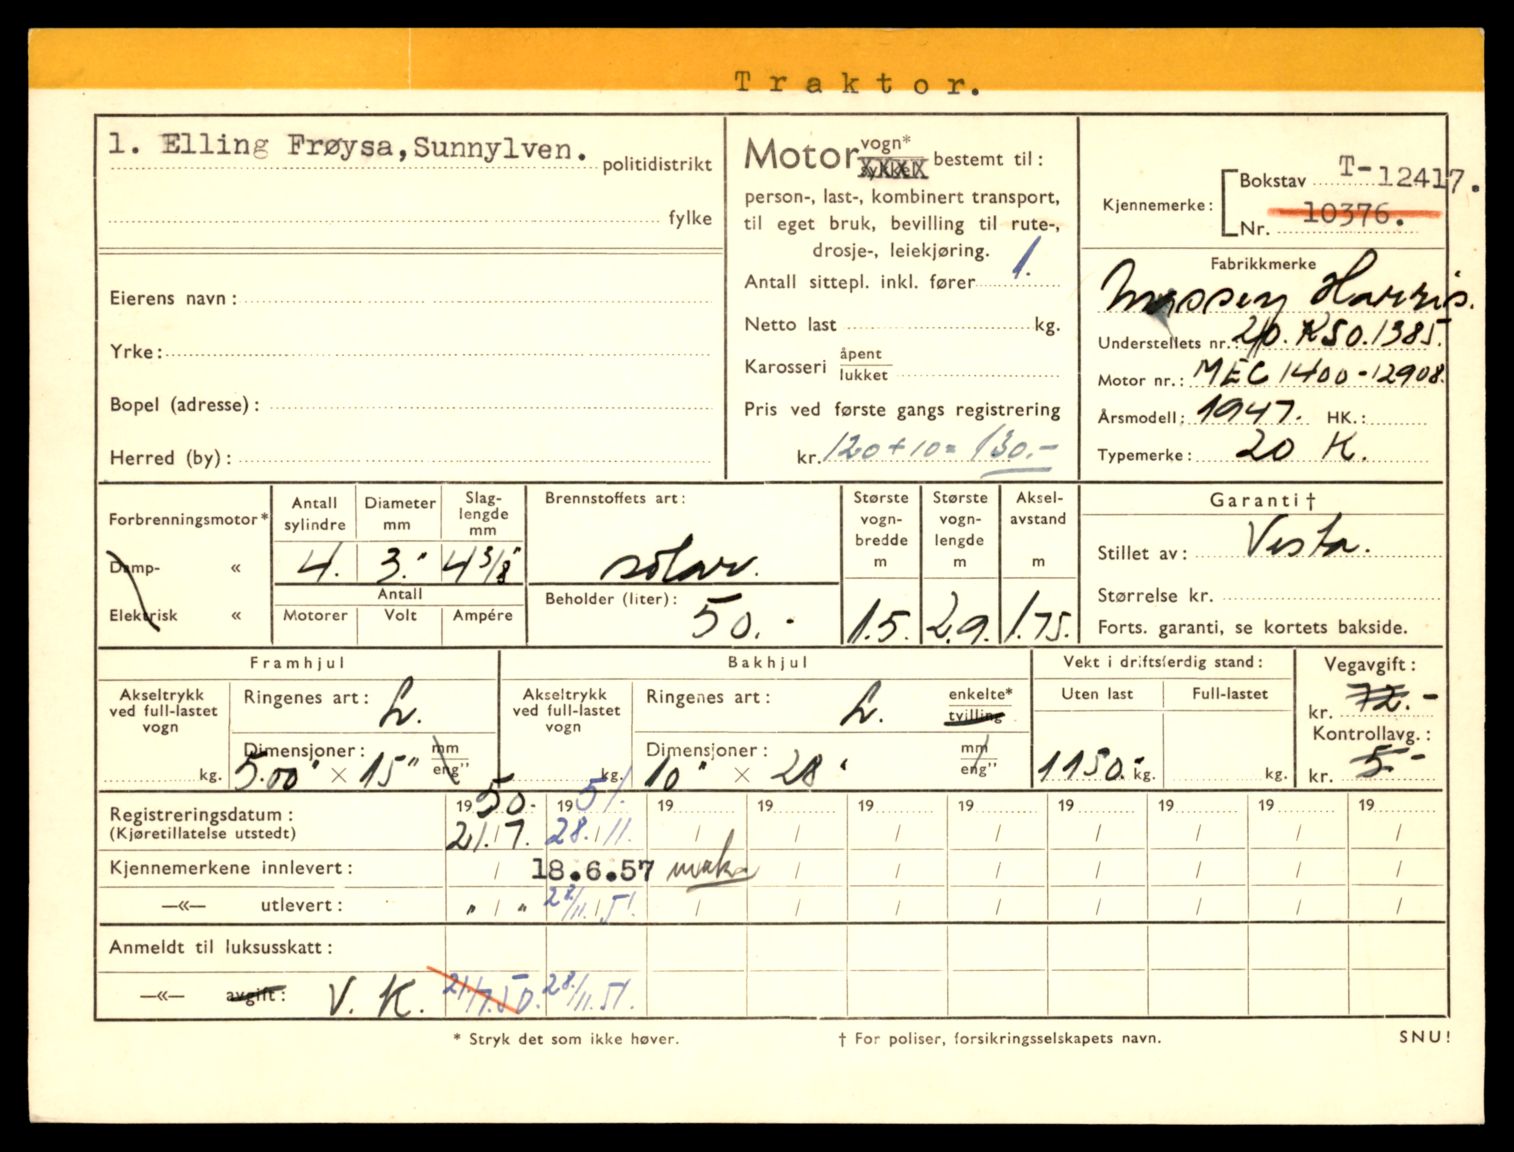 Traktor.
1. Elling Frøysa, Sunnylven. politidistrikt
fylke
Eierens navn:
Yrke:
Bopel (adresse):
Herred (by):
Motor vogn* sykkel bestemt til:
person-, last-, kombinert transport,
til eget bruk, bevilling til rute-,
drosje-, leiekjøring.
Antall sittepl. inkl. fører 1.
Netto last kg.
Karosseri åpent lukket
Pris ved første gangs registrering
kr. 120+10= 130.-
Kjennemerke: Bokstav T-12417.
Nr. 10376.
Fabrikkmerke
Massey Harris.
Understellets nr.: 20. KSO.1385.
Motor nr.: MEC 1400-12908.
Årsmodell: 1947. HK.:
Typemerke: 20 K.
Forbrenningsmotor*
Damp- «
Elektrisk «
Antall sylindre Diameter mm Slag-lengde mm
4. 3." 4 3/8"
Antall
Motorer Volt Ampére
Brennstoffets art:
solar.
Beholder (liter):
50.-
Største vogn-bredde m
1.5.
Største vogn-lengde m
2.9.
Aksel-avstand m
1.75.
Garanti †
Stillet av: Vesta.
Størrelse kr.
Forts. garanti, se kortets bakside.
Framhjul
Akseltrykk ved full-lastet vogn
kg.
Ringenes art: L.
Dimensjoner: mm eng"
5.00" × 15"
Bakhjul
Akseltrykk ved full-lastet vogn
kg.
Ringenes art: L. enkelte* tvilling
Dimensjoner: mm eng"
10" × 28"
Vekt i driftsferdig stand:
Uten last Full-lastet
1150.- kg. kg.
Vegavgift:
kr. 72.-
Kontrollavg.:
kr. 5.-
Registreringsdatum: 1950.- 1951. 19 19 19 19 19 19 19 19
(Kjøretillatelse utstedt) 21./7. 28./11. / / / / / / / /
Kjennemerkene innlevert: / 18.6.57 / / / / / / / /
—«— utlevert: " / " 28/11.51. / / / / / / / /
Anmeldt til luksusskatt:
—«— avgift: V. K. 21/7.50. 28./11.51.
* Stryk det som ikke høver.
† For poliser, forsikringsselskapets navn.
SNU!